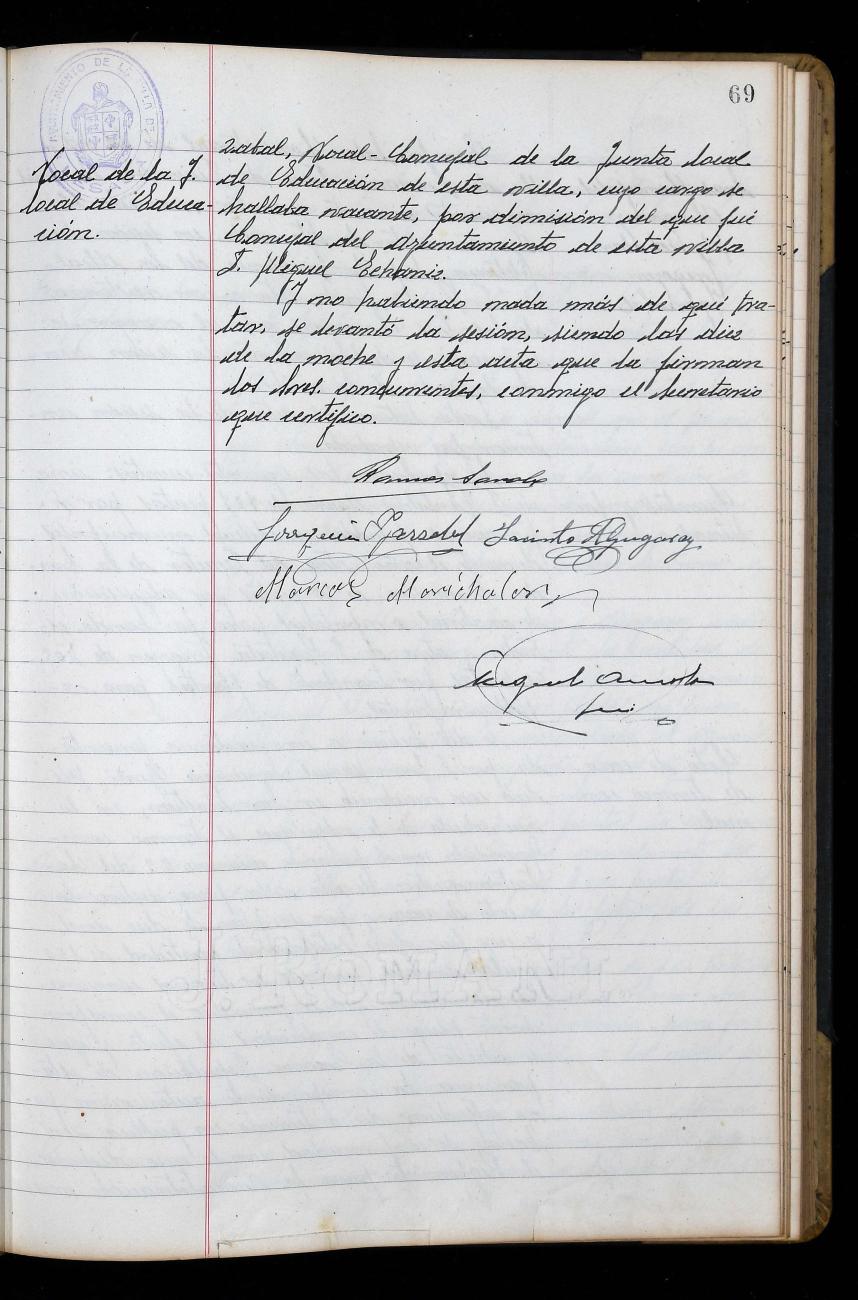 69
AYUNTAMIENTO DE LA VILLA DE
Vocal de la J.
local de Educa-
ción.
zabal, Vocal-Concejal de la Junta local
de Educación de esta villa, cuyo cargo se
hallaba vacante, por dimisión del que fué
Concejal del Ayuntamiento de esta villa
D. Miguel Echaniz.
Y no habiendo nada más de qué tra-
tar, se levantó la sesión, siendo las diez
de la noche y esta acta que la firman
los Sres. concurrentes, conmigo el Secretario
que certifico.
Joaquin Jacinto
Marcos Marichalar
Miguel